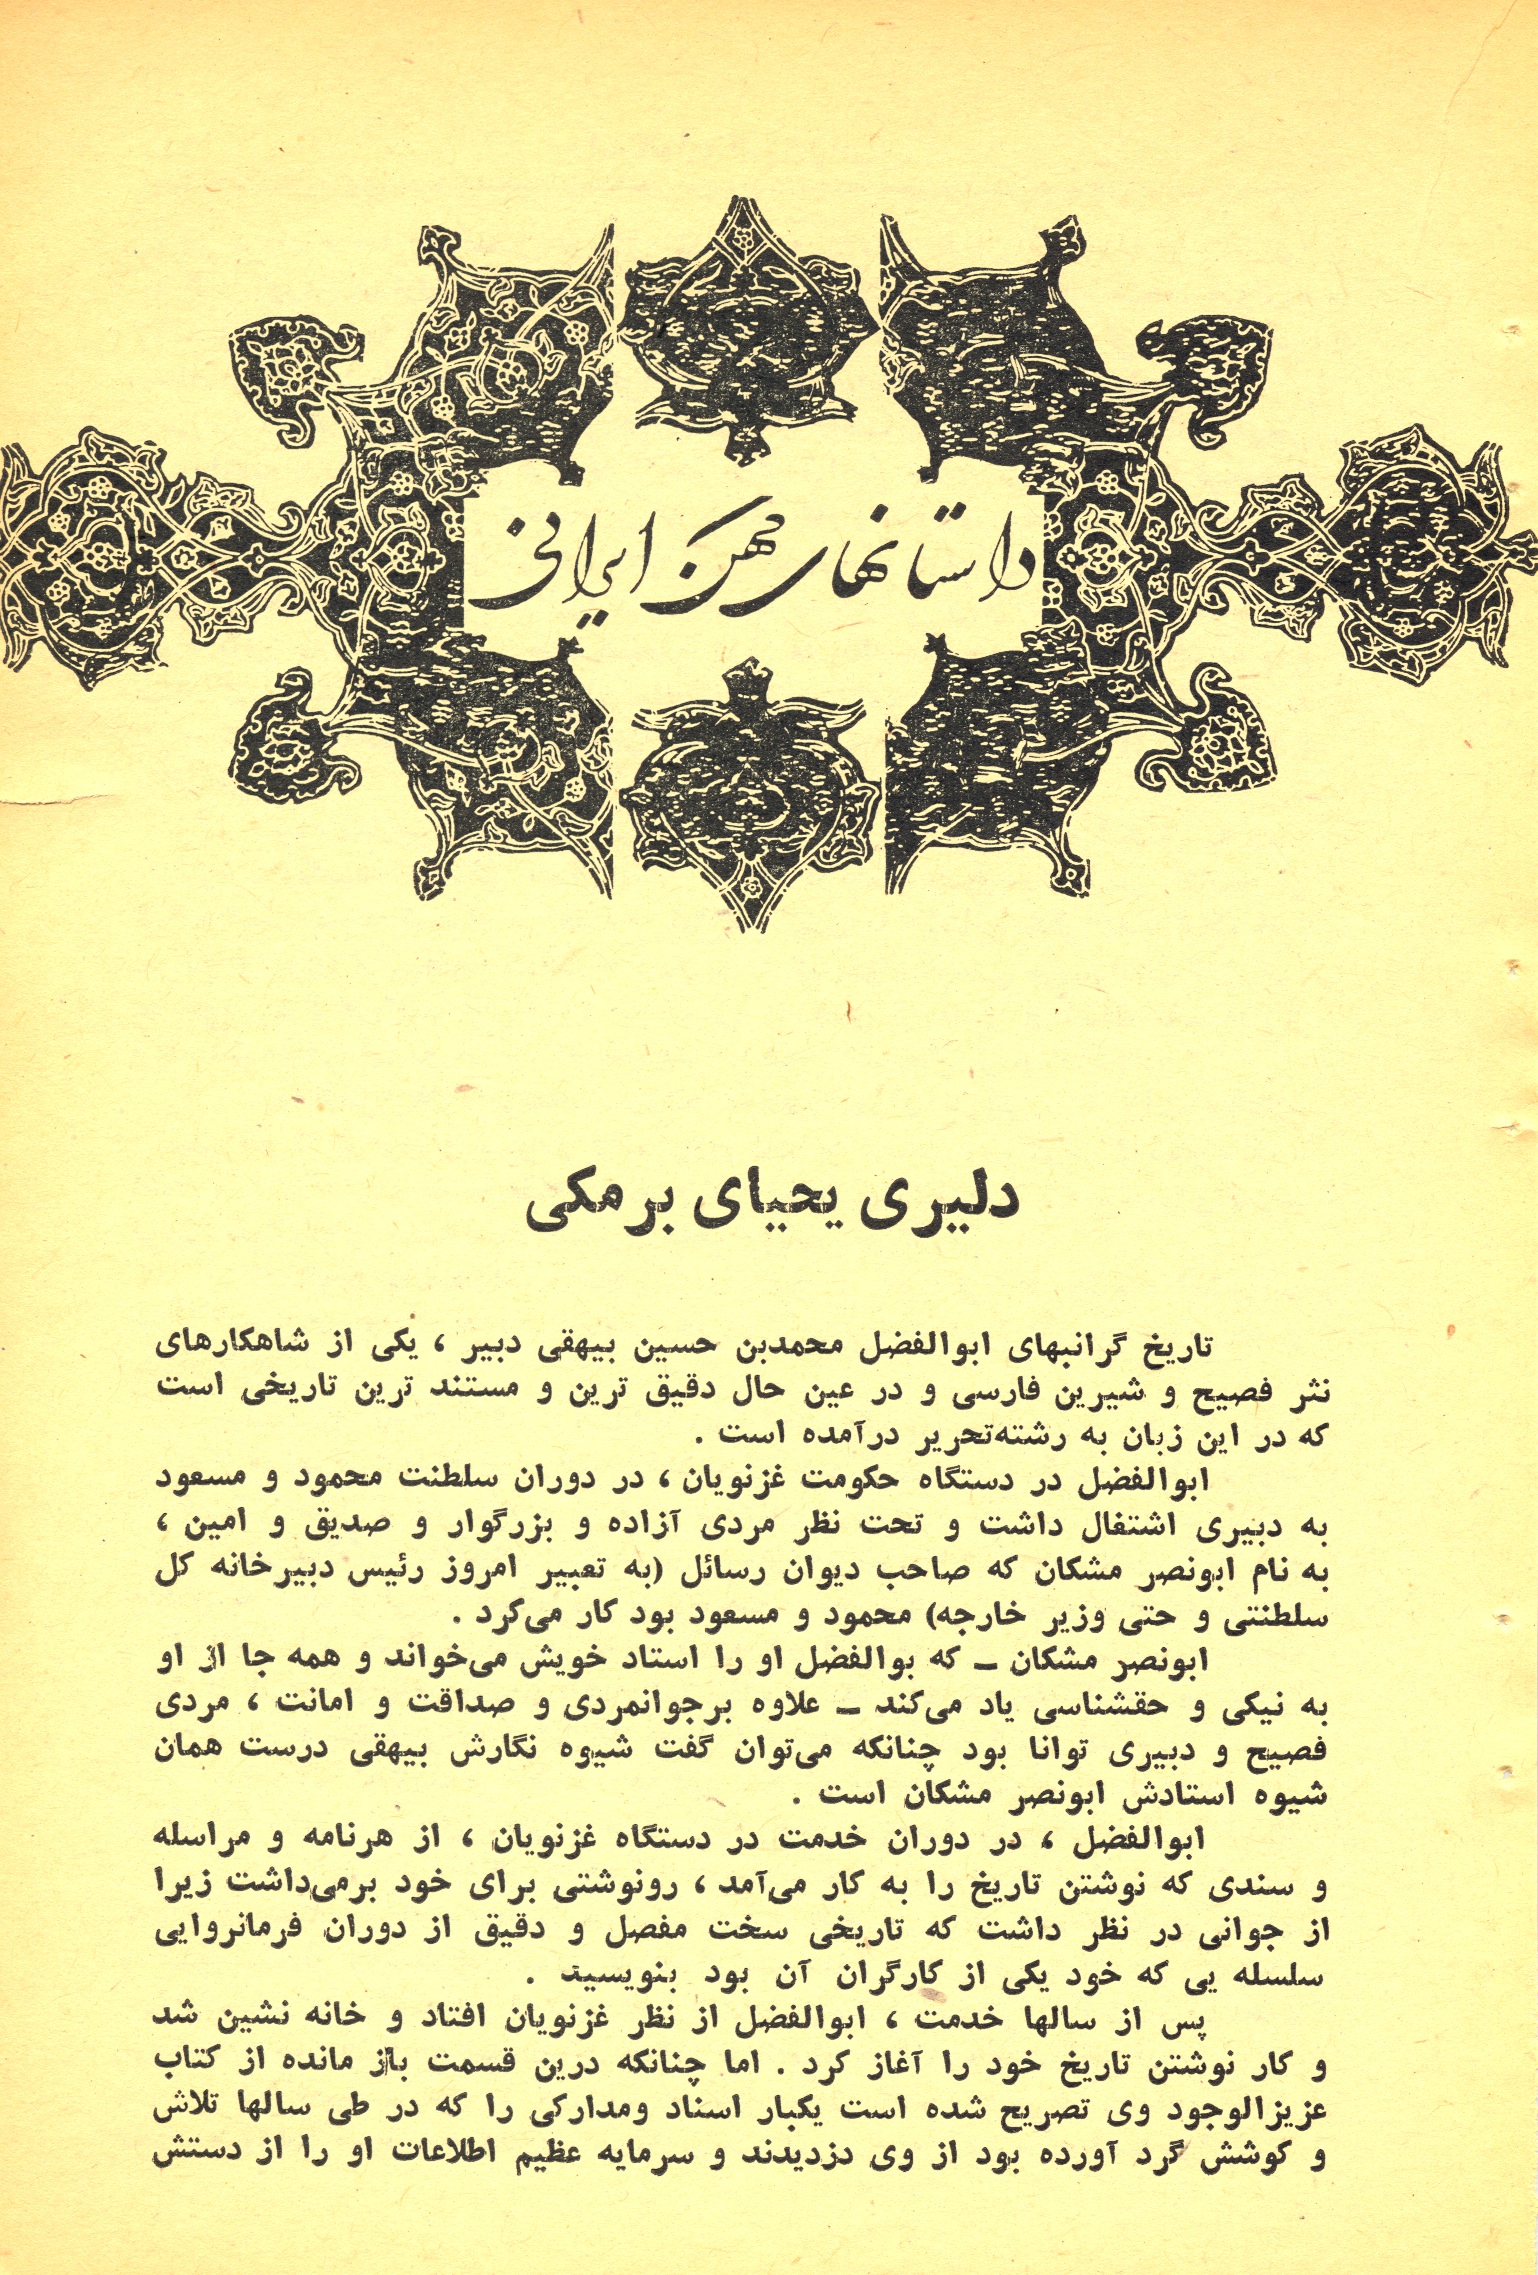 داستانهای کهن ایرانی
دلیری یحیای برمکی
تاریخ گرانبهای ابوالفضل محمدبن حسین بیهقی دبیر ، یکی از شاهکارهای
نثر فصیح و شیرین فارسی و در عین حال دقیق ترین و مستند ترین تاریخی است
که در این زبان به رشته‌تحریر درآمده است .
ابوالفضل در دستگاه حکومت غزنویان ، در دوران سلطنت محمود و مسعود
به دبیری اشتغال داشت و تحت نظر مردی آزاده و بزرگوار و صدیق و امین ،
به نام ابونصر مشکان که صاحب دیوان رسائل (به تعبیر امروز رئیس دبیرخانه کل
سلطنتی و حتی وزیر خارجه) محمود و مسعود بود کار می‌کرد .
ابونصر مشکان ــ که بوالفضل او را استاد خویش می‌خواند و همه جا از او
به نیکی و حقشناسی یاد می‌کند ــ علاوه برجوانمردی و صداقت و امانت ، مردی
فصیح و دبیری توانا بود چنانکه می‌توان گفت شیوه نگارش بیهقی درست همان
شیوه استادش ابونصر مشکان است .
ابوالفضل ، در دوران خدمت در دستگاه غزنویان ، از هرنامه و مراسله
و سندی که نوشتن تاریخ را به کار می‌آمد ، رونوشتی برای خود برمی‌داشت زیرا
از جوانی در نظر داشت که تاریخی سخت مفصل و دقیق از دوران فرمانروایی
سلسله یی که خود یکی از کارگران آن بود بنویسید .
پس از سالها خدمت ، ابوالفضل از نظر غزنویان افتاد و خانه نشین شد
و کار نوشتن تاریخ خود را آغاز کرد . اما چنانکه درین قسمت باز مانده از کتاب
عزیزالوجود وی تصریح شده است یکبار اسناد ومدارکی را که در طی سالها تلاش
و کوشش گرد آورده بود از وی دزدیدند و سرمایه عظیم اطلاعات او را از دستش